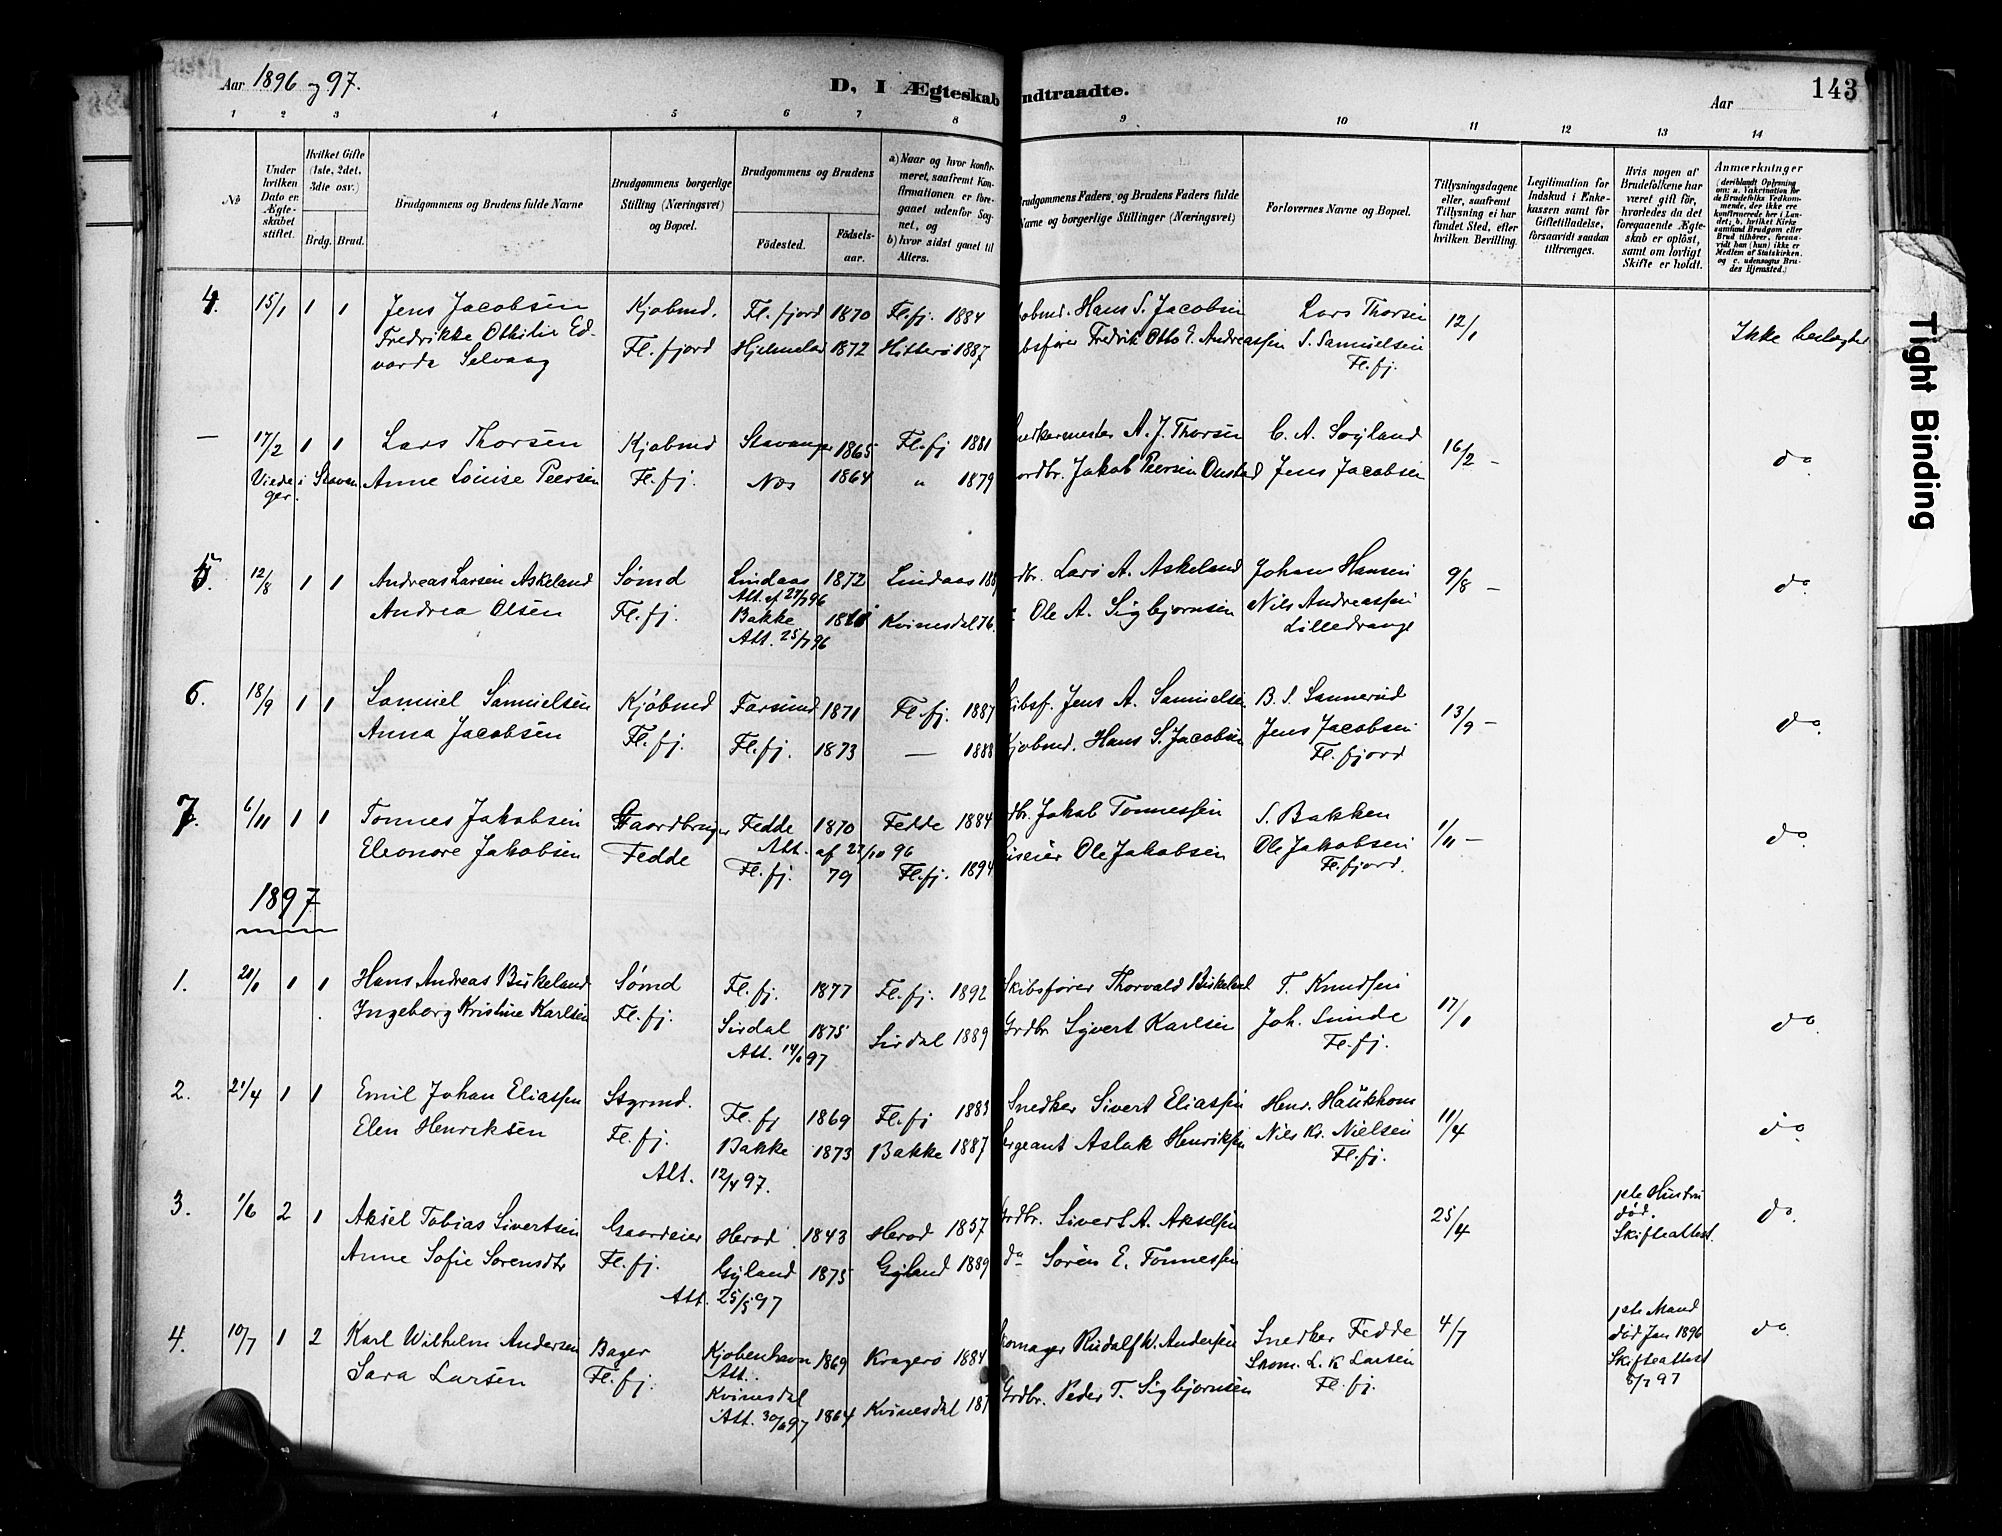 Aar 1896 og 97.
D, I Ægteskab Indtraadte.
Aar
143
1 2 3 4 5 6 7 8 9 10 11 12 13 14
No
Under hvilken Dato er Ægteskabet stiftet.
Hvilket Gifte (1ste, 2det, 3die osv.)
Brdg. Brud.
Brudgommens og Brudens fulde Navne
Brudgommens borgerlige Stilling (Næringsvei) og Bopæl.
Brudgommens og Brudens
Födested. Födsels-aar.
a) Naar og hvor konfirmeret, saafremt Konfirmationen er foregaaet udenfor Sognet, og
b) hvor sidst gaaet til Alters.
Brudgommens Faders, og Brudens Faders fulde Navne og borgerlige Stillinger (Næringsvei)
Forlovernes Navne og Bopæl.
Tillysningsdagene eller, saafremt Tillysning ei har fundet Sted, efter hvilken Bevilling.
Legitimation for Indskud i Enkekassen samt for Giftetilladelse, forsaavidt saadan tiltrænges.
Hvis nogen af Brudefolkene har været gift för, hvorledes da det foregaaende Ægteskab er oplöst, samt om lovligt Skifte er holdt.
Anmærkninger
4. 15/1 1 1 Jens Jacobsen Kjøbmd. Fl.fjord 1870 Fl.fj. 1884 Kjøbmd. Hans S. Jacobsen Lars Thorsen 12/1 Ikke beslægtet
Fredrikke Othilie Edvarda Selvaag Fl.fjord Hjelmeland 1872 Hitterø 1887 Skibsfører Fredrik Otto E. Andreassen S. Samuelsen Fl.fj.
— 17/2 1 1 Lars Thorsen Kjøbmd Stavanger 1865 Fl.fj 1881 Snedkermester A. J. Thorsen C. A. Søyland 16/2 — do
Viede i Stavanger. Anne Louise Peersen Fl.fj. Næs 1864 " 1879 Gaardbr. Jakob Peersen Omstad Jens Jacobsen
5. 12/8 1 1 Andreas Larsen Askeland Sømd Lindaas 1872 Lindaas Grdbr. Lars A. Askeland Johan Hansen 9/8 — do
Att. af 27/7 96
Andrea Olsen Fl.fj. Bakke Kvinesdal 76. Ole A. Sigbjørnsen Nils Andreassen Lilledrange
Att. 25/7 96
6. 18/9 1 1 Samuel Samuelsen Kjøbmd Farsund 1871 Fl.fj. 1887 Skibsf. Jens A. Samuelsen B. S. Sannerud 13/9 — do
Anna Jacobsen Fl.fj. Fl.fj. 1873 — 1888 Kjøbmd. Hans S. Jacobsen Jens Jacobsen Fl.fjord
7. 6/11 1 1 Tønnes Jakobsen Gaardbruger Fedde 1870 Fedde 1884 Grdbr. Jakob Tønnessen S. Bakken 1/11 — do
Att. af 27/10 96
Eleonore Jakobsen Fedde Fl.fj. 79 Fl.fj. 1894 Huseier Ole Jakobsen Ole Jakobsen Fl.fjord.
1897
1. 20/1 1 1 Hans Andreas Birkeland Sømd Fl.fj. 1877 Fl.fj. 1892 Skibsfører Thorvald Birkeland T. Knudsen 17/1 do
Ingeborg Kristine Karlsen Fl.fj. Sirdal 1875 Sirdal 1889 Grdbr. Syvert Karlsen Joh. Lunde Fl.fj.
Att. 14/1 97
2. 21/4 1 1 Emil Johan Eliassen Styrmd. Fl.fj 1869 Fl.fj 1883 Snedker Sivert Eliassen Henr. Haukhom 11/4 do
Elen Henriksen Fl.fj. Bakke 1873 Bakke 1887 Sergeant Aslak Henriksen Nils Kr. Nielsen Fl.fj.
Att. 12/4 97.
3. 1/6 2 1 Aksel Tobias Sivertsen Gaardeier Herad 1843 Herad 1857 Grdbr. Sivert A. Akselsen 25/4 1ste Hustru død. Skifteattest. do
Anne Sofie Sørensdtr Fl.fj. Gyland 1875 Gyland 1889 do Søren E. Tønnessen
Att. 25/5 97
4. 10/7 1 2 Karl Wilhelm Andersen Bager Kjøbenhavn 1869 Kragerø 1884 Skomager Rudolf W. Andersen Snedker Fedde 4/7 1ste Mand død Jan 1896 Skifteattest 5/7 97 do
Att.
Sara Larsen Fl.fj. Kvinesdal 1864 Kvinesdal Grdbr. Peder T. Sigbjørnsen Skom. L. K Larsen Fl.fj.
Att. 30/6 97
Tight Binding